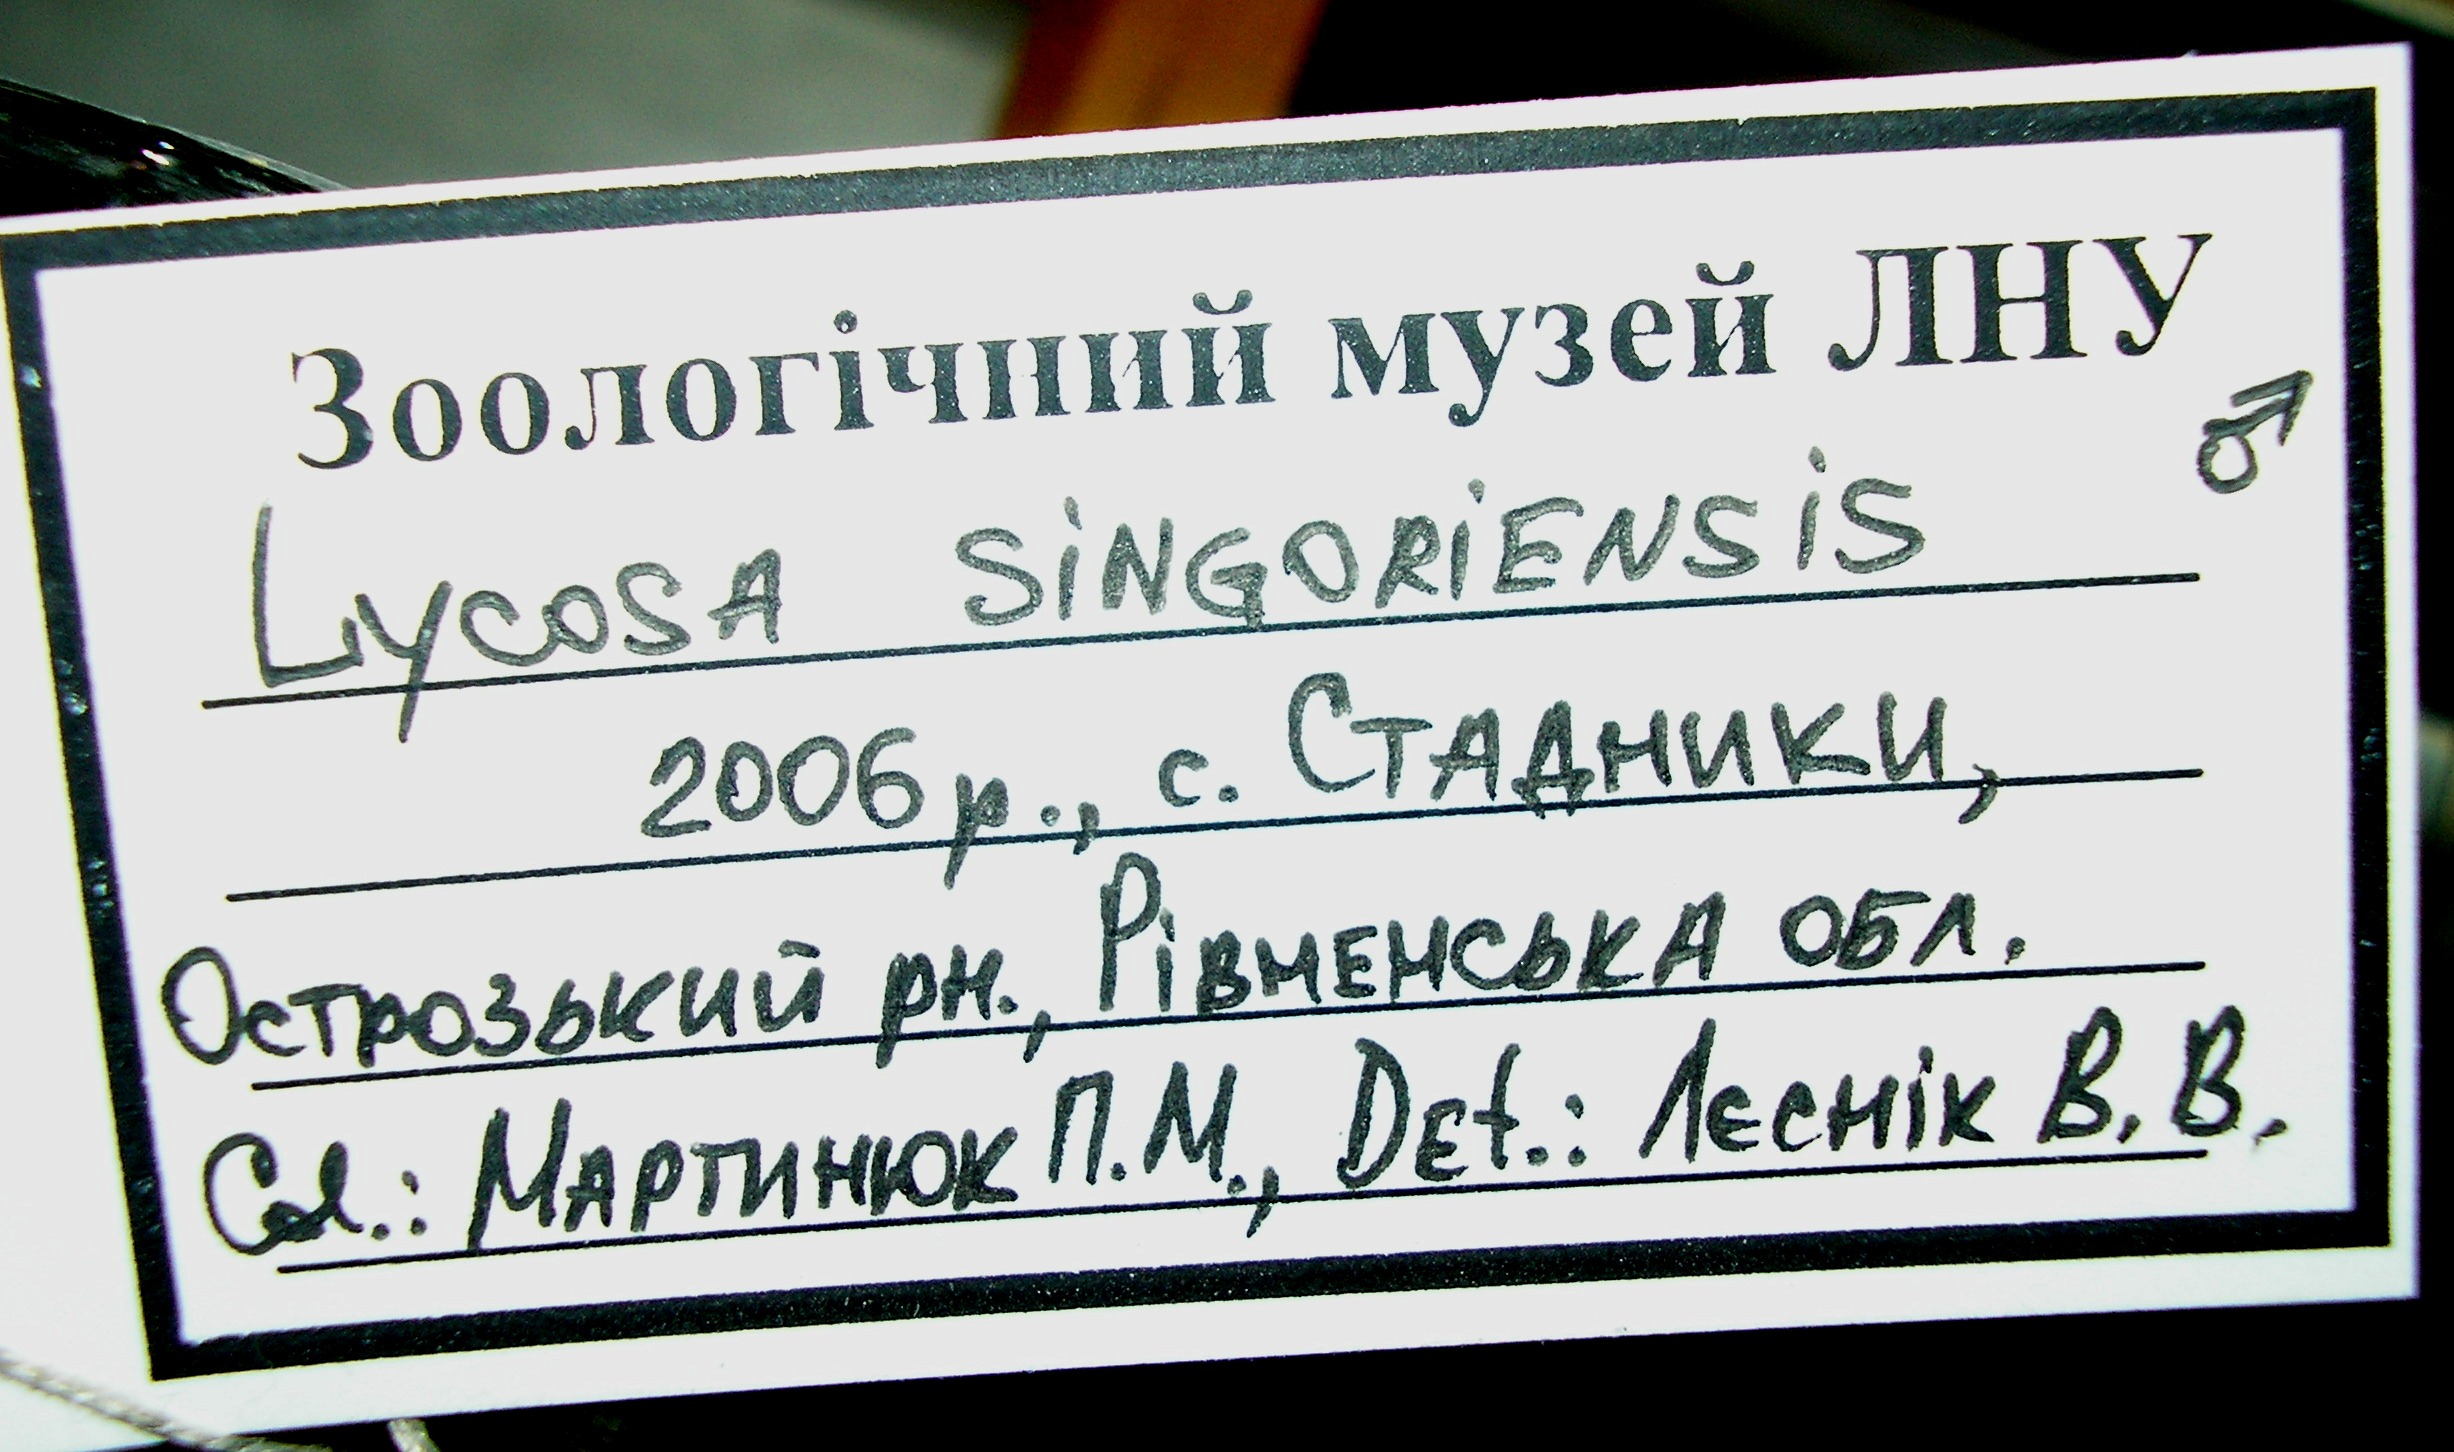 Зоологічний музей ЛНУ
♂
Lycosa singoriensis
2006 р., с. Стадники,
Острозький рн., Рівненська обл.
Col.: Мартинюк П.М., Det.: Лєснік В. В.